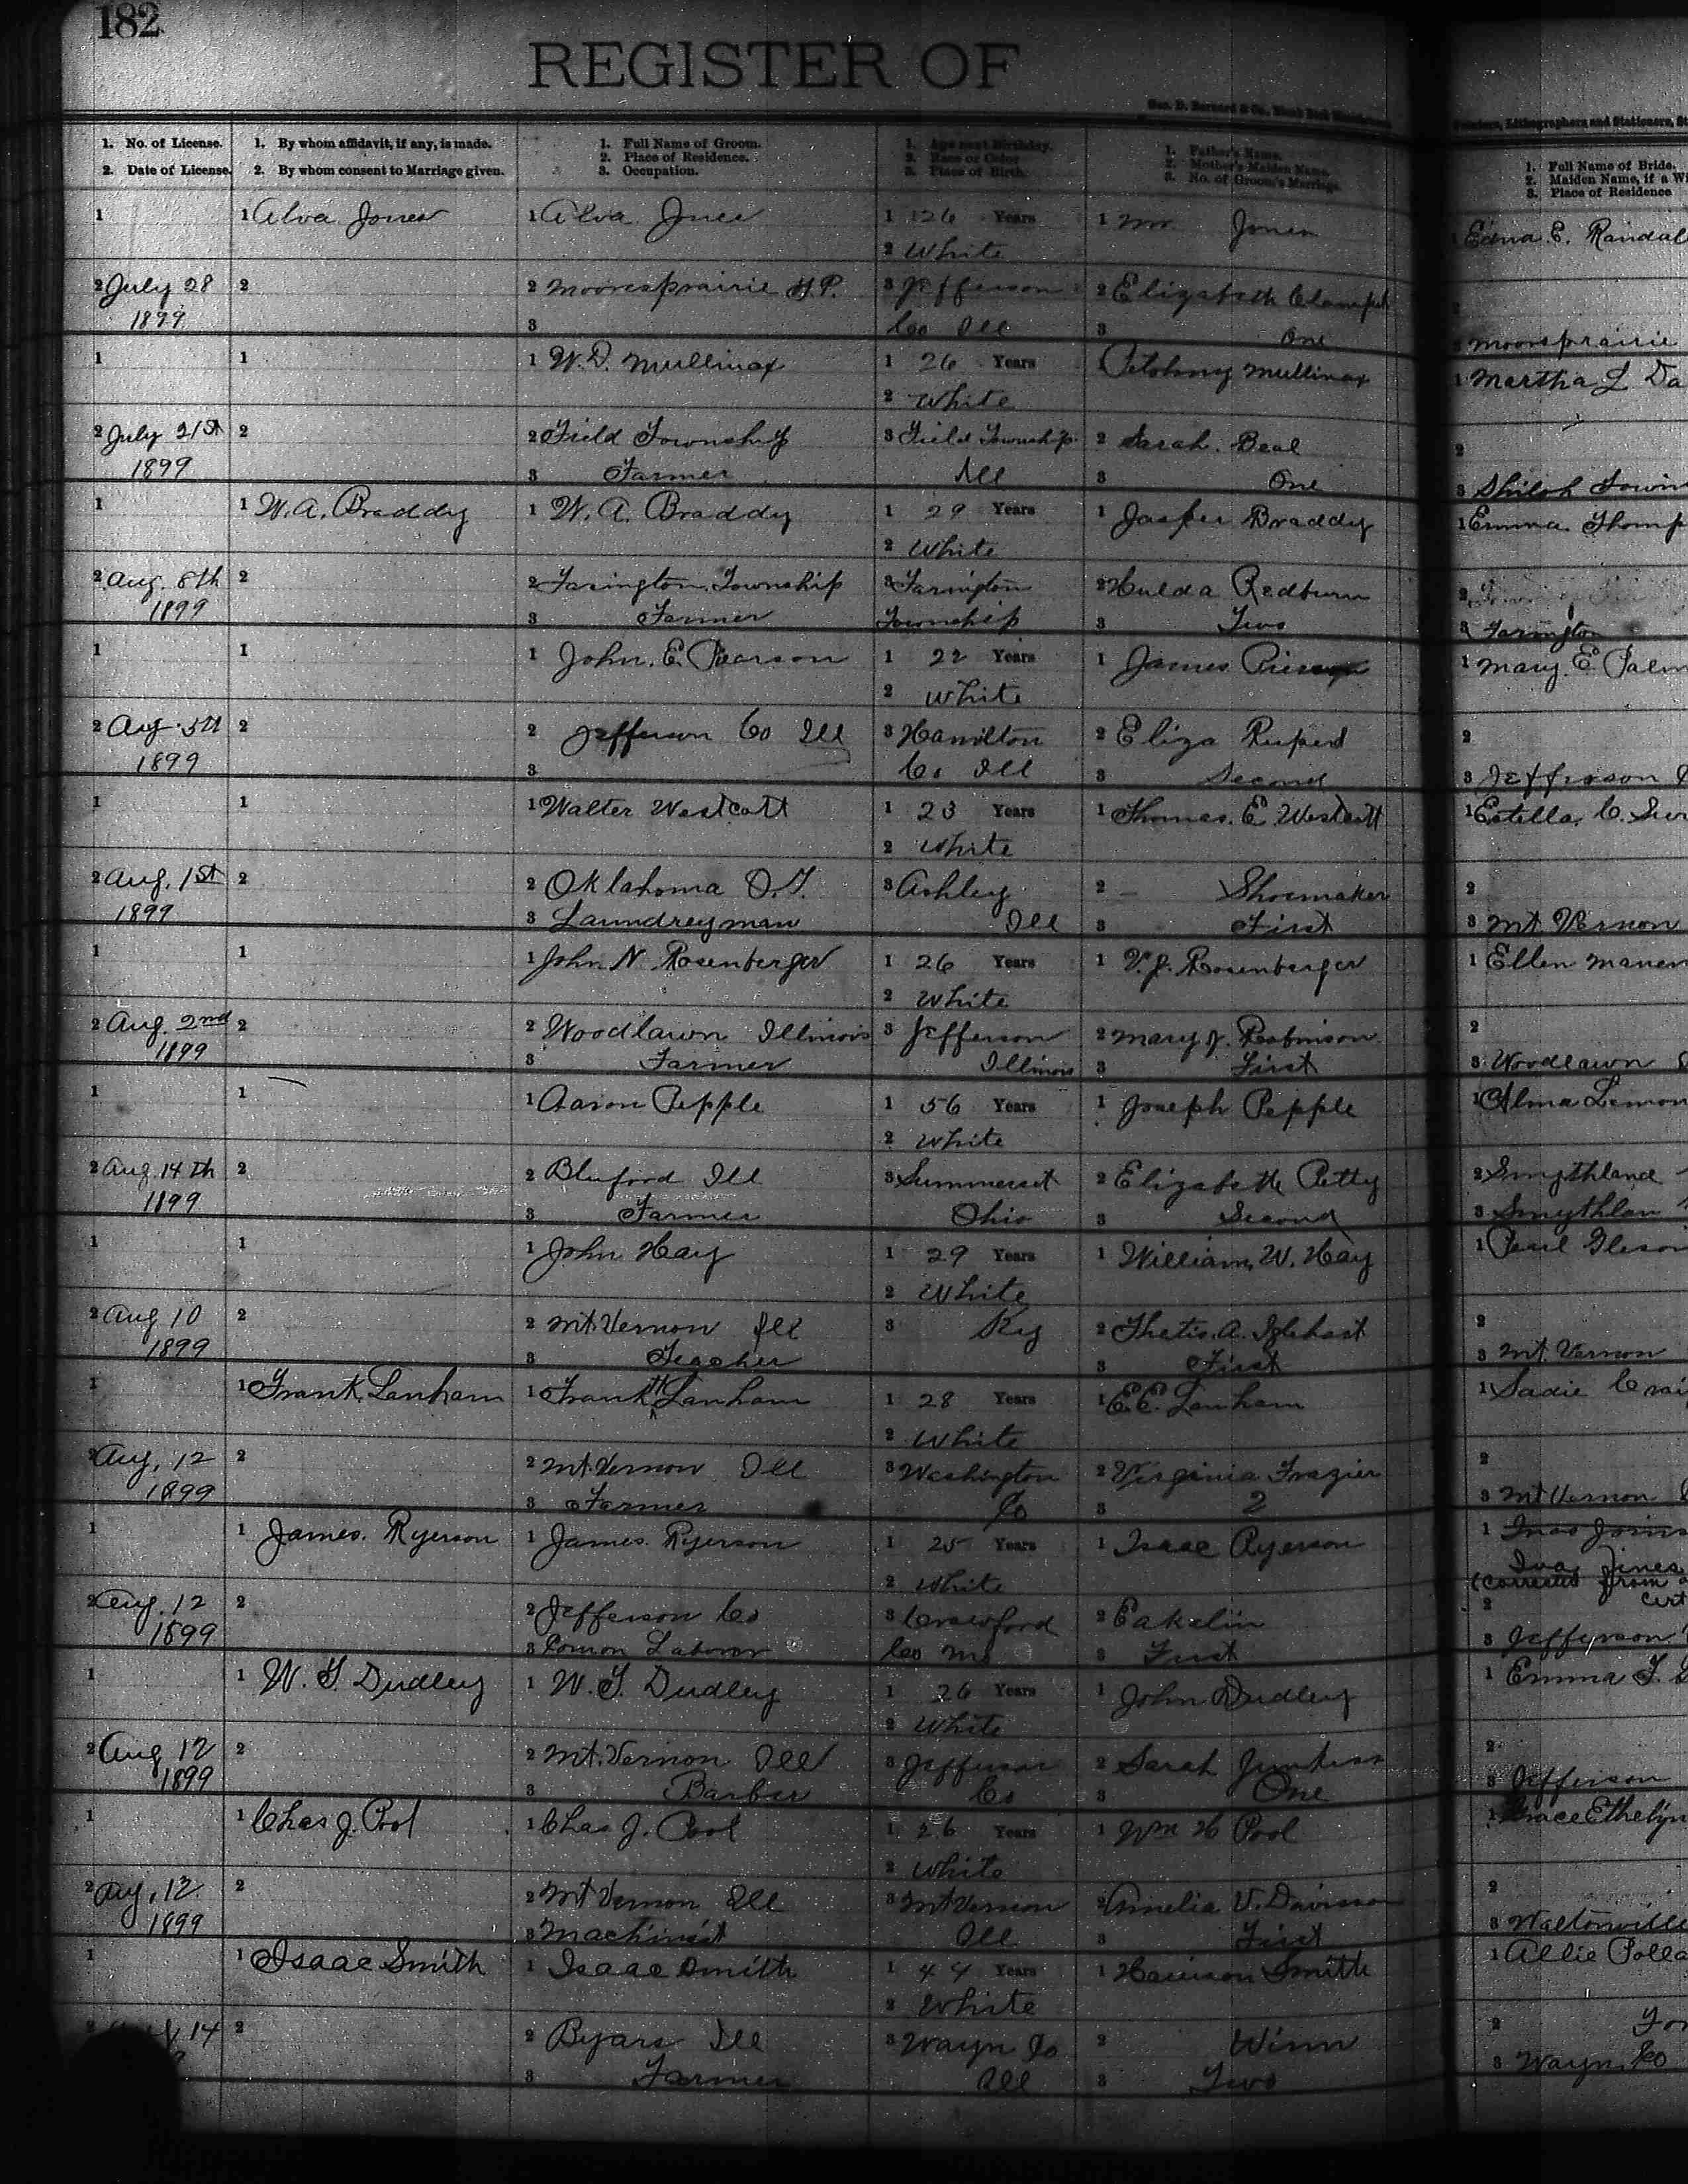 182
REGISTER OF
Geo. D. Barnard & Co., Blank Book
Printers, Lithographers and Stationers, St
1. No. of License. 1. By whom affidavit, if any, is made. 1. Full Name of Groom. 1. Age next Birthday. 1. Father's Name. 1. Full Name of Bride.
2. Date of License. 2. By whom consent to Marriage given. 2. Place of Residence. 2. Race or Color 2. Mother's Maiden Name. 2. Maiden Name, if a Wi
3. Occupation. 3. Place of Birth. 3. No. of Groom's Marriage. 3. Place of Residence
1 1 Alva Jones 1 Alva Jones 1 26 Years 1 Wm Jones Edna E. Randal
2 White
2 July 28 2 2 Mooresprairie T.P. 3 Jefferson 2 Elizabeth
1899 3 Co Ill 3 One 3 Mooresprairie
1 1 1 W. D. Mullinax 1 26 Years Mullinax 1 Martha L Da
2 White
2 July 21st 2 2 Field Township 3 Field Township 2 Sarah. Beal 2
1899 3 Farmer Ill 3 One 3 Shiloh Town
1 1 W. A. Braddy 1 W. A. Braddy 1 29 Years 1 Jasper Braddy 1 Emma Thomp
2 White
2 Aug. 8th 2 2 Farington Township 3 Farington 2 Hulda Redburn 2
1899 3 Farmer Township 3 Two 3 Farington
1 1 1 John. E. Pearson 1 22 Years 1 James 1 Mary. E. Palm
2 White
2 Aug 5th 2 2 Jefferson Co Ill 3 Hamilton 2 Eliza Ruperd 2
1899 3 Co Ill 3 Second 3 Jefferson
1 1 1 Walter Westcott 1 23 Years 1 Thomas. E. Westcott 1 Estella. C. Sur
2 White
2 Aug. 1st 2 2 Oklahoma O.T. 3 Ashley 2 Shoemaker 2
1899 3 Laundreyman Ill 3 First 3 Mt Vernon
1 1 1 John N Rosenberger 1 26 Years 1 V. J. Rosenberger 1 Ellen Maner
2 White
2 Aug. 2nd 2 2 Woodlawn Illinois 3 Jefferson 2 Mary J. Robinson 2
1899 3 Farmer Illinois 3 First 3 Woodlawn
1 1 1 Aaron Pepple 1 56 Years 1 Joseph Pepple 1 Alma Lemon
2 White
2 Aug. 14th 2 2 Bluford Ill 3 Summerset 2 Elizabeth Petty 2 Smythland
1899 3 Farmer Ohio 3 Second 3 Smythlan
1 1 1 John Hay 1 29 Years 1 William. W. Hay 1 Perl Gleson
2 White
2 Aug 10 2 2 Mt. Vernon Ill 3 Ky 2 Thetis. A. Iglehart 2
1899 3 Teacher 3 First 3 Mt. Vernon
1 1 Frank Lanham 1 Frank H Lanham 1 28 Years 1 E. E. Lanham 1 Sadie Crai
2 White
2 Aug. 12 2 2 Mt. Vernon Ill 3 Washington 2 Virginia Frazier 2
1899 3 Farmer Co 3 2 3 Mt Vernon
1 1 James. Ryerson 1 James. Ryerson 1 25 Years 1 Isaac Ryerson 1
2 White Iva Jines
(corrected from
2 Aug. 12 2 2 Jefferson Co 3 Crawford 2 Eakelin 2 Cert
1899 3 Comon Laborer Co Mo 3 First 3 Jefferson
1 1 W. T. Dudley 1 W. T. Dudley 1 26 Years 1 John Dudley 1 Emma F.
2 White
2 Aug 12 2 2 Mt. Vernon Ill 3 Jefferson 2 Sarah 2
1899 3 Barber Co 3 One 3 Jefferson
1 1 Chas J. Pool 1 Chas J. Pool 1 26 Years 1 Wm H Pool 1 Grace Ethelyn
2 White
2 Aug. 12 2 2 Mt Vernon Ill 3 Mt Vernon 2 Amelia V. Davisson 2
1899 3 Machinist Ill 3 First 3 Waltonville
1 1 Isaac Smith 1 Isaac Smith 1 44 Years 1 Harrison Smith 1 Allie Polla
2 White
2 14 2 2 Byars Ill 3 Wayn Co 2 Winn 2
3 Farmer Ill 3 Two 3 Wayn Co